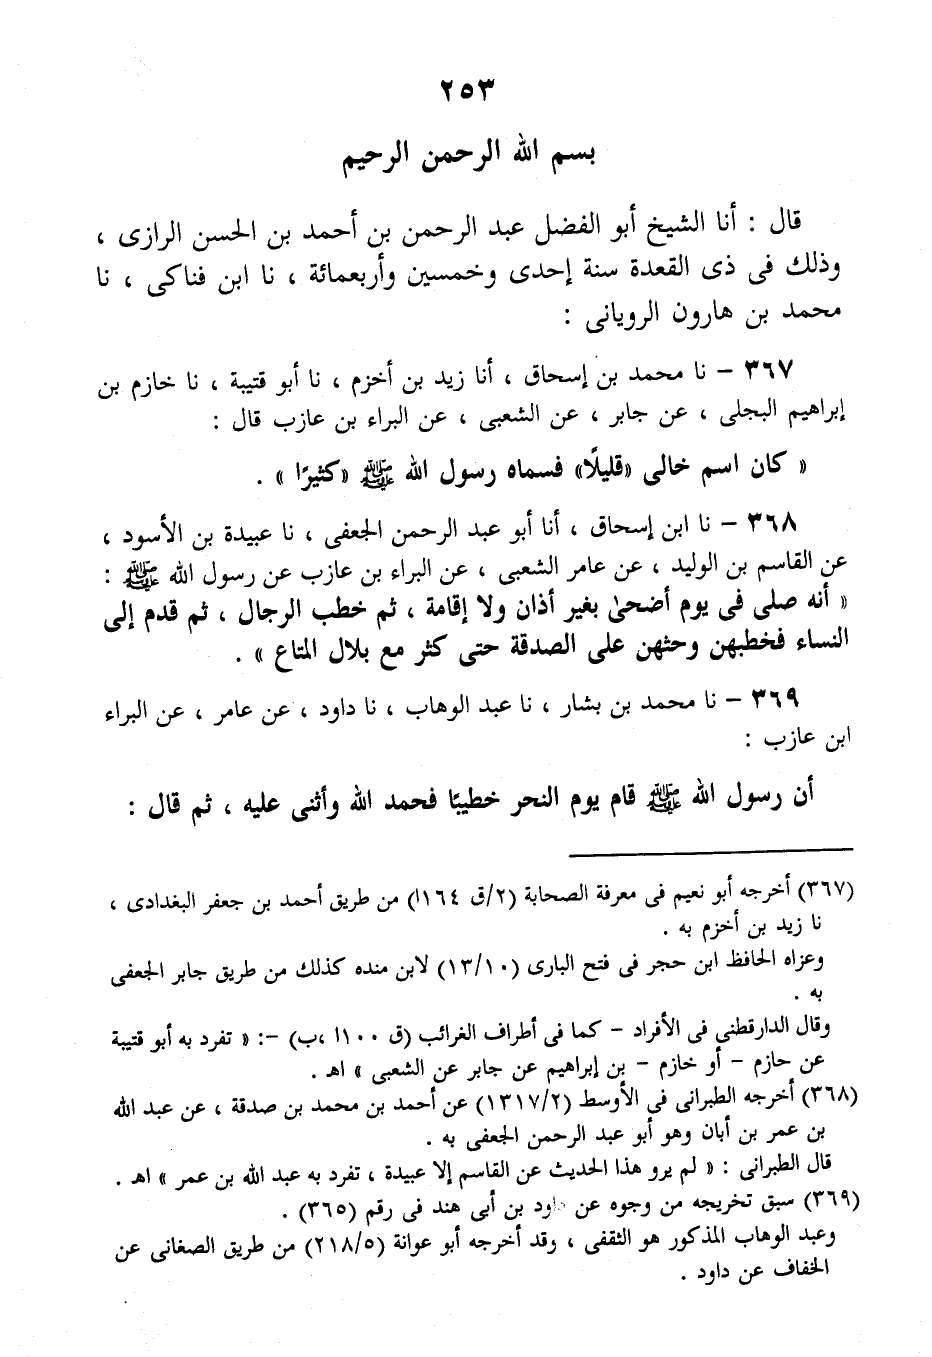 ٢٥٣
بسم الله الرحمن الرحيم
قال : أنا الشيخ أبو الفضل عبد الرحمن بن أحمد بن الحسن الرازى ،
وذلك فى ذى القعدة سنة إحدى وخمسين وأربعمائة ، نا ابن فناكى ، نا
محمد بن هارون الرويانى :
٣٦٧ – نا محمد بن إسحاق ، أنا زيد بن أخزم ، نا أبو قتيبة ، نا خازم بن
إبراهيم البجلى ، عن جابر ، عن الشعبى ، عن البراء بن عازب قال :
« كان اسم خالى «قليلًا» فسماه رسول الله ﷺ «كثيرًا » .
٣٦٨ – نا ابن إسحاق ، أنا أبو عبد الرحمن الجعفى ، نا عبيدة بن الأسود ،
عن القاسم بن الوليد ، عن عامر الشعبى ، عن البراء بن عازب عن رسول الله ﷺ :
« أنه صلى فى يوم أضحىٰ بغير أذان ولا إقامة ، ثم خطب الرجال ، ثم قدم إلى
النساء فخطبهن وحثهن على الصدقة حتى كثر مع بلال المتاع » .
٣٦٩ – نا محمد بن بشار ، نا عبد الوهاب ، نا داود ، عن عامر ، عن البراء
ابن عازب :
أن رسول الله ﷺ قام يوم النحر خطيبًا فحمد الله وأثنى عليه ، ثم قال :
(٣٦٧) أخرجه أبو نعيم فى معرفة الصحابة (٢/ق ١٦٤أ) من طريق أحمد بن جعفر البغدادى ،
نا زيد بن أخزم به .
وعزاه الحافظ ابن حجر فى فتح البارى (١٣/١٠) لابن منده كذلك من طريق جابر الجعفى
به .
وقال الدارقطنى فى الأفراد – كما فى أطراف الغرائب (ق ١٠٠أ ،ب) –: « تفرد به أبو قتيبة
عن حازم – أو خازم – بن إبراهيم عن جابر عن الشعبى » اهـ .
(٣٦٨) أخرجه الطبرانى فى الأوسط (١٣١٧/٢) عن أحمد بن محمد بن صدقة ، عن عبد الله
بن عمر بن أبان وهو أبو عبد الرحمن الجعفى به .
قال الطبرانى : « لم يرو هذا الحديث عن القاسم إلا عبيدة ، تفرد به عبد الله بن عمر » اهـ .
(٣٦٩) سبق تخريجه من وجوه عن داود بن أبى هند فى رقم (٣٦٥) .
وعبد الوهاب المذكور هو الثقفى ، وقد أخرجه أبو عوانة (٢١٨/٥) من طريق الصغانى عن
الخفاف عن داود .